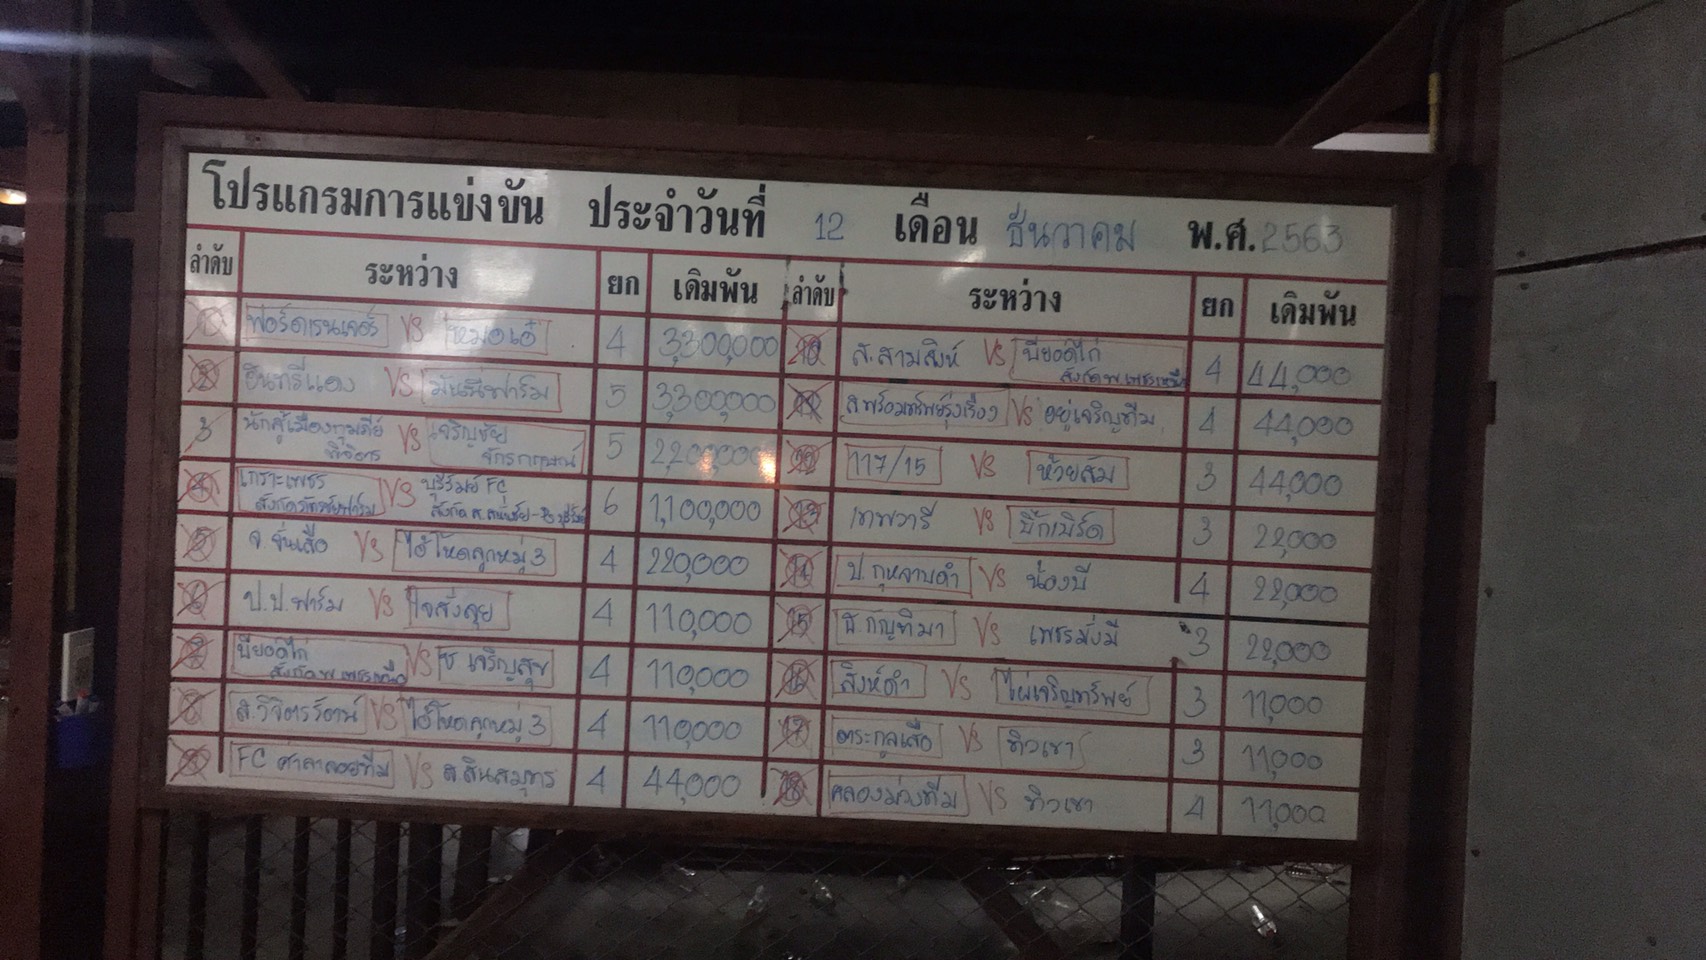 โปรแกรมการแข่งขัน ประจำวันที่ 12 เดือน ธันวาคม พ.ศ.2563
ลำดับ ระหว่าง ยก เดิมพัน ลำดับ ระหว่าง ยก เดิมพัน
1 ฟอร์ดเรนเจอร์ VS หมอเอ๋ 4 3,300,000
2 อินทรีแดง VS มันนี่ฟาร์ม 5 3,300,000
3 นักสู้เมืองกุมภีย์ พิจิตร VS เจริญชัย จักรกฤษณ์ 5 2,200,000
4 เกราะเพชร VS บุรีรัมย์ FC 6 1,100,000
5 จ.จันเสือ VS ไอ้โหดลูกหมู่ 3 4 220,000
6 ป.ป.ฟาร์ม VS ใจสั่งลุย 4 110,000
7 บียอดไก่ VS ช เจริญสุข 4 110,000
8 ส.วิจิตรรัตน์ VS ไอ้โหดลูกหมู่ 3 4 110,000
9 FC ศาลาลอยทีม VS ส.สินสมุทร 4 44,000
10 ส.สามสิงห์ VS บียอดไก่ 4 44,000
11 ส พร้อมทรัพย์รุ่งเรือง VS อยู่เจริญทีม 4 44,000
12 117/15 VS ห้วยส้ม 3 44,000
13 เทพวารี VS บิ๊กเบิร์ด 3 22,000
14 ป.กุหลาบดำ VS น้องบี 4 22,000
15 ธ.กัญทิมา VS เพชรมั่งมี 3 22,000
16 สิงห์ดำ VS ไผ่เจริญทรัพย์ 3 11,000
17 ตระกูลเสือ VS ทิวเขา 3 11,000
18 คลองม่วงทีม VS ทิวเขา 4 11,000